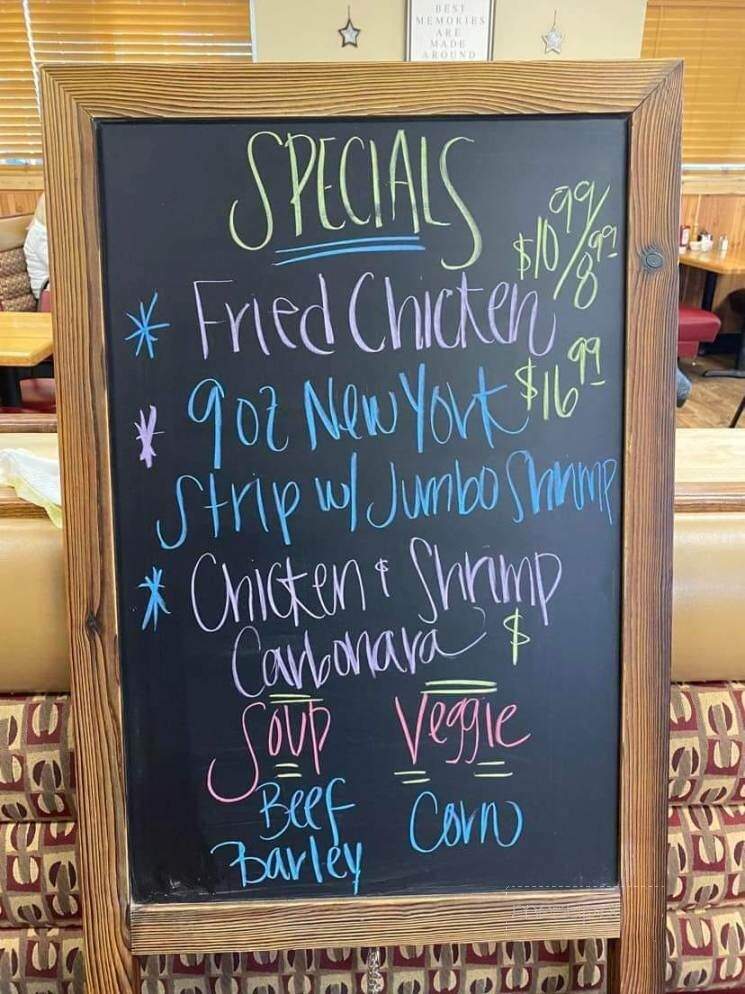 BEST
MEMORIES
ARE
MADE
AROUND
SPECIALS
$10.99/8.99
* Fried Chicken
* 9oz New York $16.99
Strip w/ Jumbo Shrimp
* Chicken & Shrimp
Carbonara $
Soup Veggie
Beef Corn
Barley